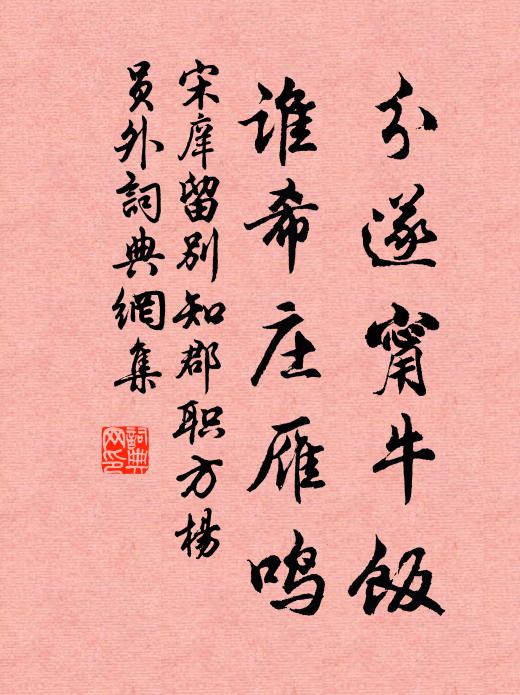 分遂甯牛飯
谁希庄雁鸣
宋庠留别知郡职方楊
员外詞典網集
詞典网印